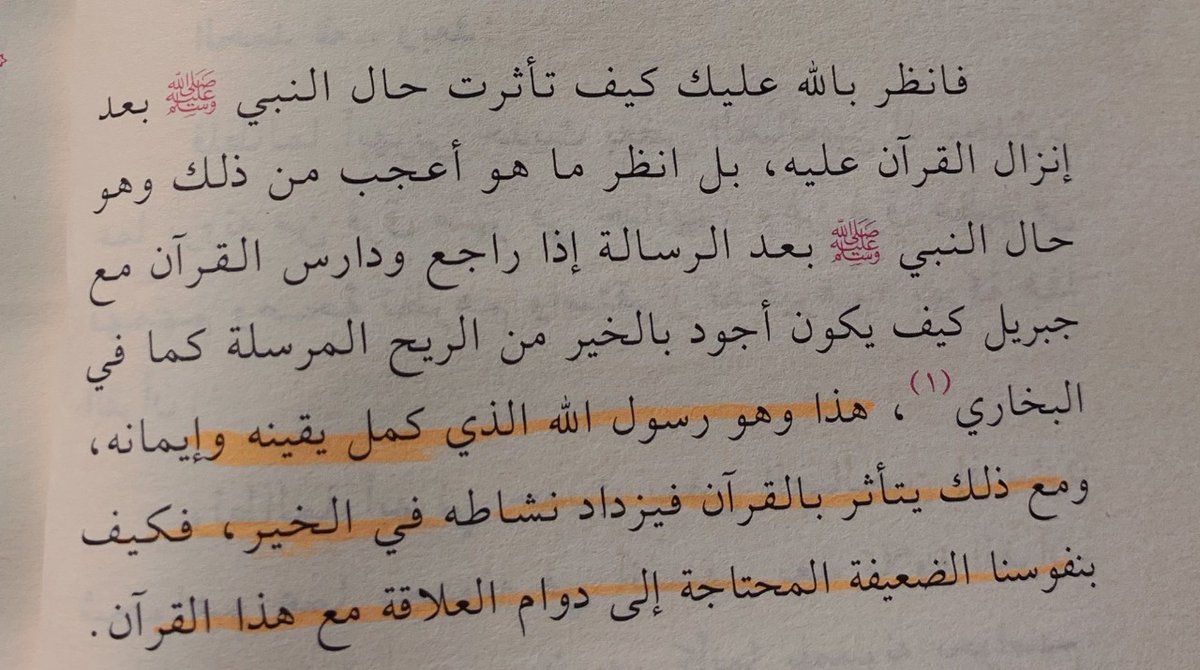 فانظر بالله عليك كيف تأثرت حال النبي ﷺ بعد
إنزال القرآن عليه، بل انظر ما هو أعجب من ذلك وهو
حال النبي ﷺ بعد الرسالة إذا راجع ودارس القرآن مع
جبريل كيف يكون أجود بالخير من الريح المرسلة كما في
البخاري(١)، هذا وهو رسول الله الذي كمل يقينه وإيمانه،
ومع ذلك يتأثر بالقرآن فيزداد نشاطه في الخير، فكيف
بنفوسنا الضعيفة المحتاجة إلى دوام العلاقة مع هذا القرآن.